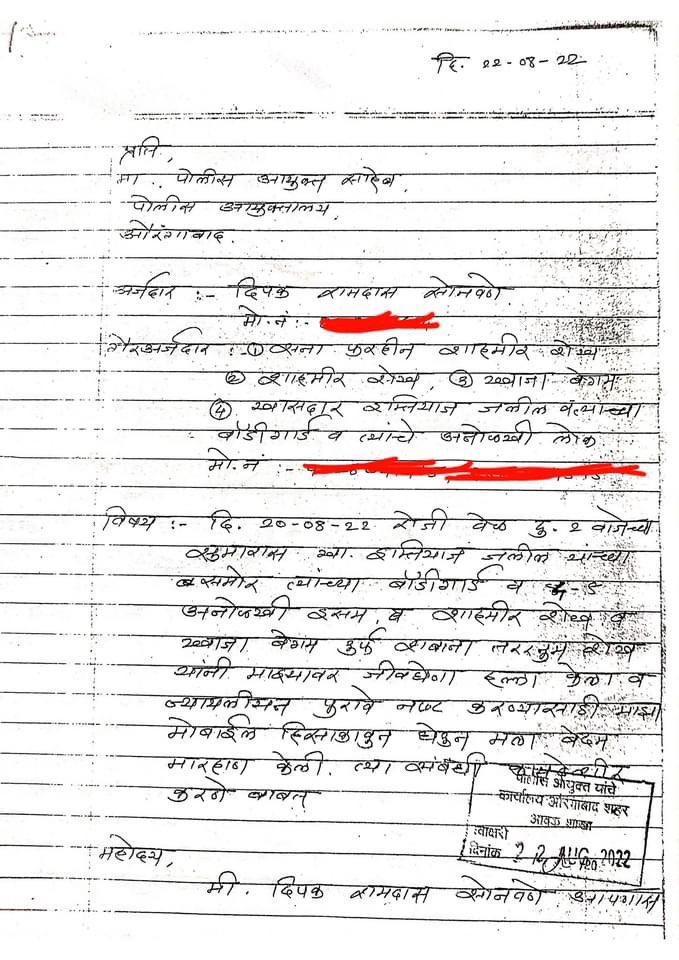 दि. २२-०8-२२
प्रति,
मा. पोलीस आयुक्त साहेब,
पोलीस आयुक्तालय,
औरंगाबाद.
अर्जदार :- दिपक रामदास सोनवणे.
मो.नं :-
गैरअर्जदार :- ① सना फरहीन शाहमीर शेख
② शाहमीर शेख, ③ ख्वाजा बेगम
④ खासदार इम्तियाज जलील व त्यांच्या
बॉडीगार्ड व त्यांचे अनोळखी लोक
मो.नं :-
विषय :- दि. २०-०8-२२ रोजी वेळ दु. २ वाजेच्या
सुमारास खा. इम्तियाज जलील यांच्या
समोर त्यांच्या बॉडीगार्ड व
अनोळखी इसम, व शाहमीर शेख व
ख्वाजा बेगम उर्फ शबाना तरन्नुम शेख
यांनी माझ्यावर जीवघेणा हल्ला केला व
न्यायालयीन पुरावे नष्ट करण्यासाठी माझा
मोबाईल हिसाकावुन घेवुन मला बेदम
मारहाण केली. त्या संबंधी
करणे बाबत
पोलीस आयुक्त यांचे
कार्यालय औरंगाबाद शहर
आवक शाखा
स्वाक्षरी
दिनांक 22 AUG 2022
महोदय,
मी. दिपक रामदास सोनवणे आपणास